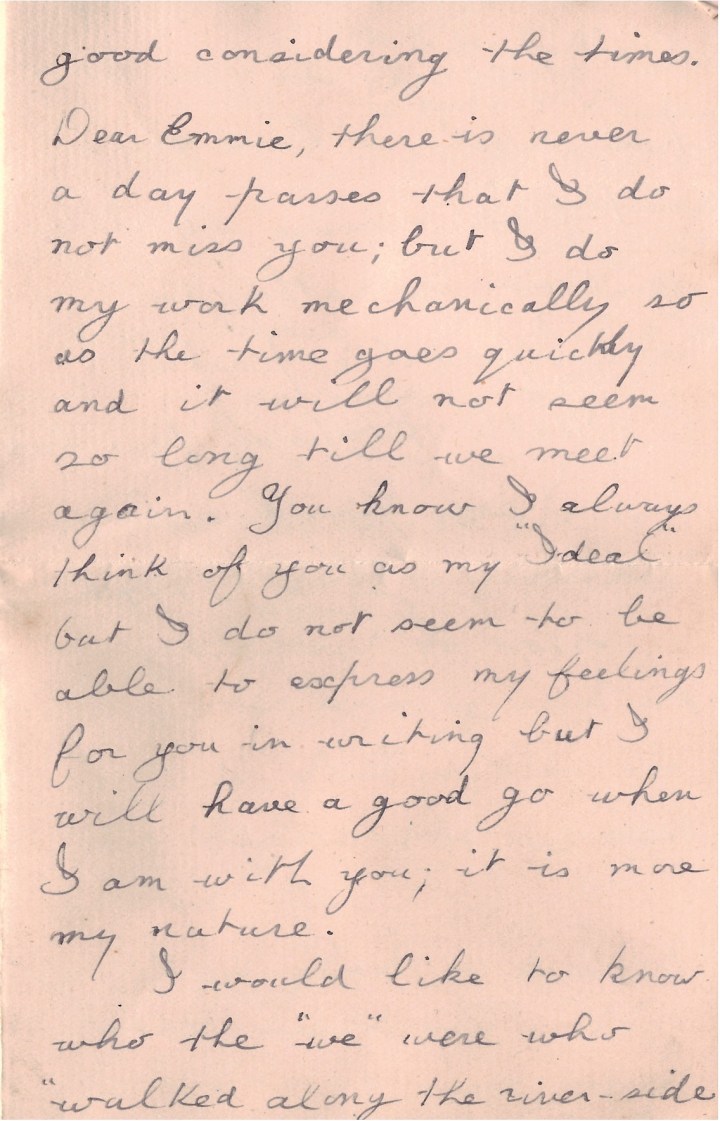 good considering the times.
Dear Emmie, there is never
a day passes that I do
not miss you; but I do
my work mechanically so
as the time goes quickly
and it will not seem
so long till we meet
again. You know I always
think of you as my "Ideal"
but I do not seem to be
able to express my feelings
for you in writing but I
will have a good go when
I am with you; it is more
my nature.
I would like to know
who the "we" were who
"walked along the river-side